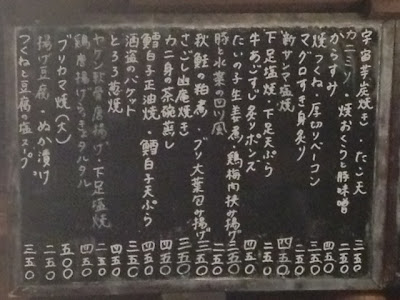 宇宙芋炭焼き・たこ天 三五〇
カニミソ・焼おくらと豚味噌 二五〇
からすみ 四五〇
焼つくね・厚切りベーコン 三五〇
マグロすき身炙り 四五〇
新サンマ塩焼 四五〇
下足塩焼・下足天ぷら 二五〇
牛あごすじ炙りポンズ 四五〇
たいの子生姜煮・鶏梅肉挟み揚げ 三五〇
豚と水菜の四川風 二五〇
秋鮭の粕煮・ブリ大葉包み揚げ 三五〇
さごし山庵焼き 三五〇
カニ身の茶碗蒸し 四五〇
鱈白子正油焼・鱈白子天ぷら 四五〇
酒盗のバケット 三五〇
とろろ葱焼 四五〇
ヤゲン軟骨唐揚げ・下足塩焼 二五〇
鶏唐揚げ タルタル 四五〇
ブリカマ焼(大) 五〇〇
揚げ豆腐・ぬか漬け 二五〇
つくねと豆腐の塩スープ 三五〇